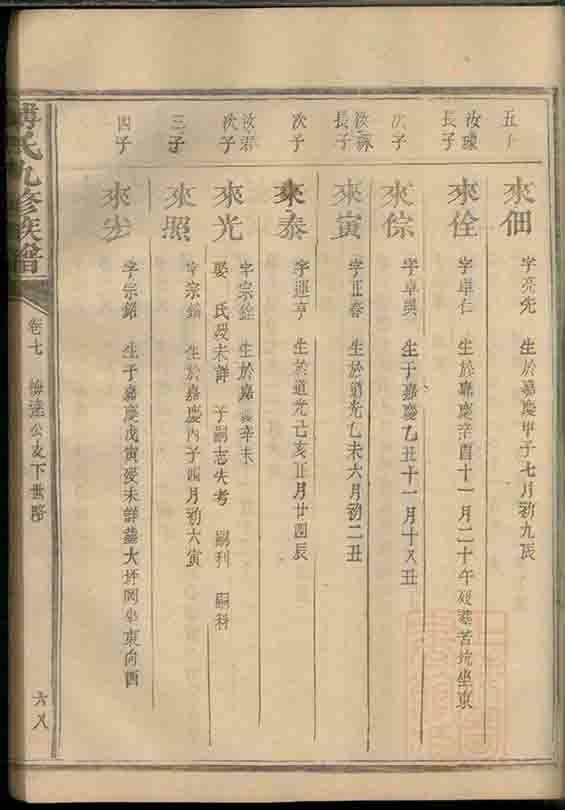 五子
來佃
字亮先 生於嘉慶甲子七月初九辰
汝璪
長子
來佺
字卓仁 生於嘉慶辛酉十一月二十午歿塟苦坑坐東
次子
來倧
字卓吳 生于嘉慶乙丑十一月十又丑
汝霖
長子
來寅
字正春 生於道光乙未六月初二丑
次子
來泰
字運亨 生於道光己亥正月廿四辰
汝君
次子
來光
字宗銓 生於嘉慶辛未
娶 氏歿未詳 子嗣志失考 嗣列 嗣科
三子
來照
字宗 生於嘉慶丙子四月初六寅
四子
來
字宗銘 生于嘉慶戊寅歿未詳塟大坪岡坐東向酉
傅氏九修族譜
卷七 公支下世畧
六八